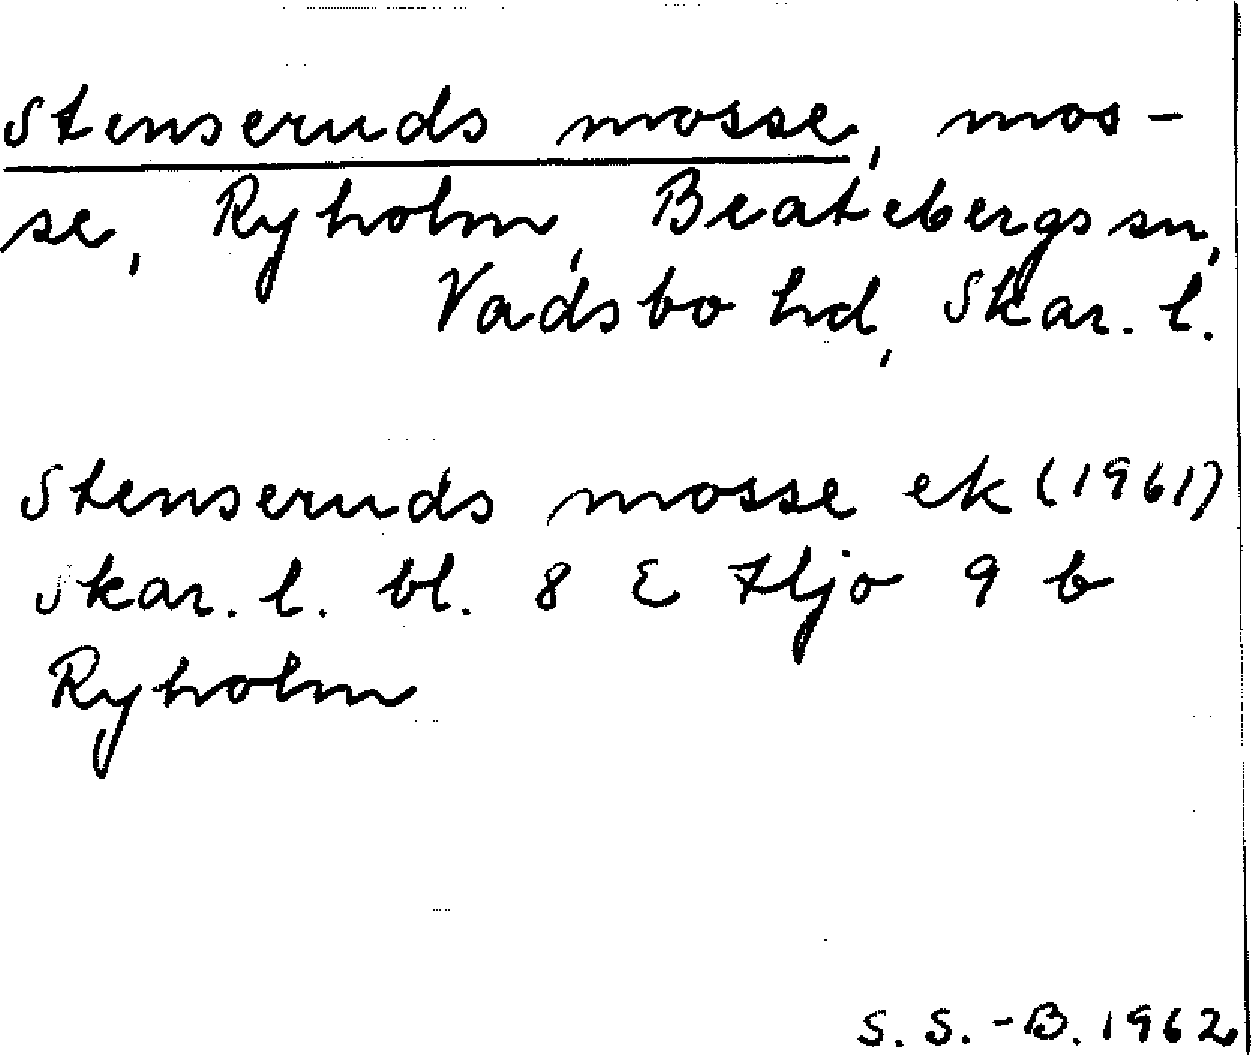 Stenseruds mosse, mos-
se, Ryholm, Beatebergs sn,
Vadsbo hd, Skar. l.
Stenseruds mosse ek (1961)
Skar. l. bl. 8 E Hjo 9 b
Ryholm
S. S.-B. 1962